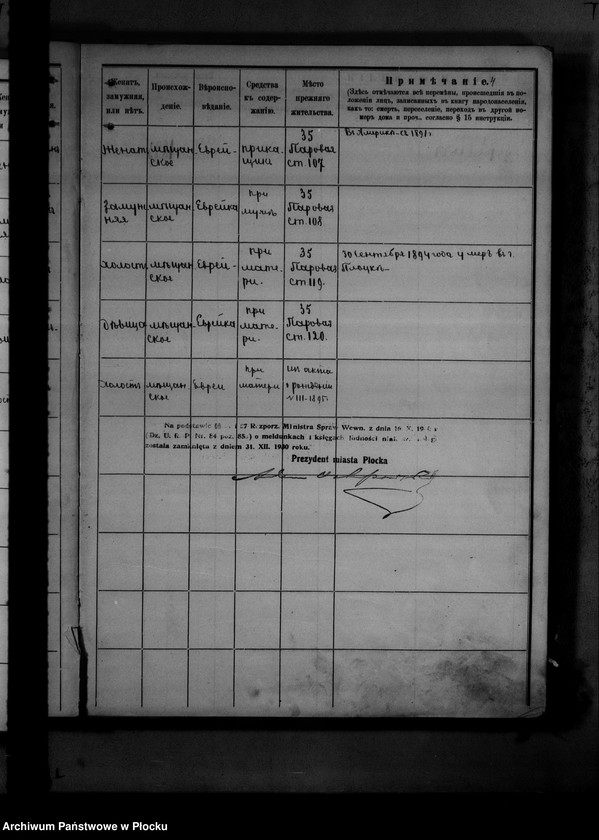 Женатъ, замужняя, или нѣтъ.
Происхож-
деніе.
Вѣроиспо-
вѣданіе.
Средства
къ содер-
жанію.
Мѣсто
прежняго
жительства.
Примѣчаніе. 4
(Здѣсь отмѣчаются всѣ перемѣны, происшедшія въ по-
ложеніи лицъ, записанныхъ въ книгу народонаселенія,
какъ то: смерть, переселеніе, переходъ въ другой но-
меръ дома и проч., согласно § 15 инструкціи.
Женат
мѣщан
ское
Еврей
прика-
щики
35
Паровая
ст. 107
Въ Америкѣ съ 1891 г
Замуж
няя
мѣщан
ское
Еврейка
при
мужѣ
35
Паровая
ст. 108
Холост
мѣщан
ское
Еврей
при
мате-
ри.
35
Паровая
ст 119.
сентября 1894 года умеръ въ г.
Плоцкѣ
Дѣвица
мѣщан
ское
Еврейка
при
мате-
ри.
35
Паровая
ст. 120.
Холостъ
мѣщан
ское
Еврей
при
матери
акта
о рожденіи
VIII-1895
Na podstawie §§ i 27 Rozporz. Ministra Spraw Wewn. z dnia 16 X.
(Dz. U. R. P. Nr. 84 poz. 653.) o meldunkach i księgach ludności
została zamknięta z dniem 31. XII. 1930 roku.
Prezydent miasta Płocka
Archiwum Państwowe w Płocku